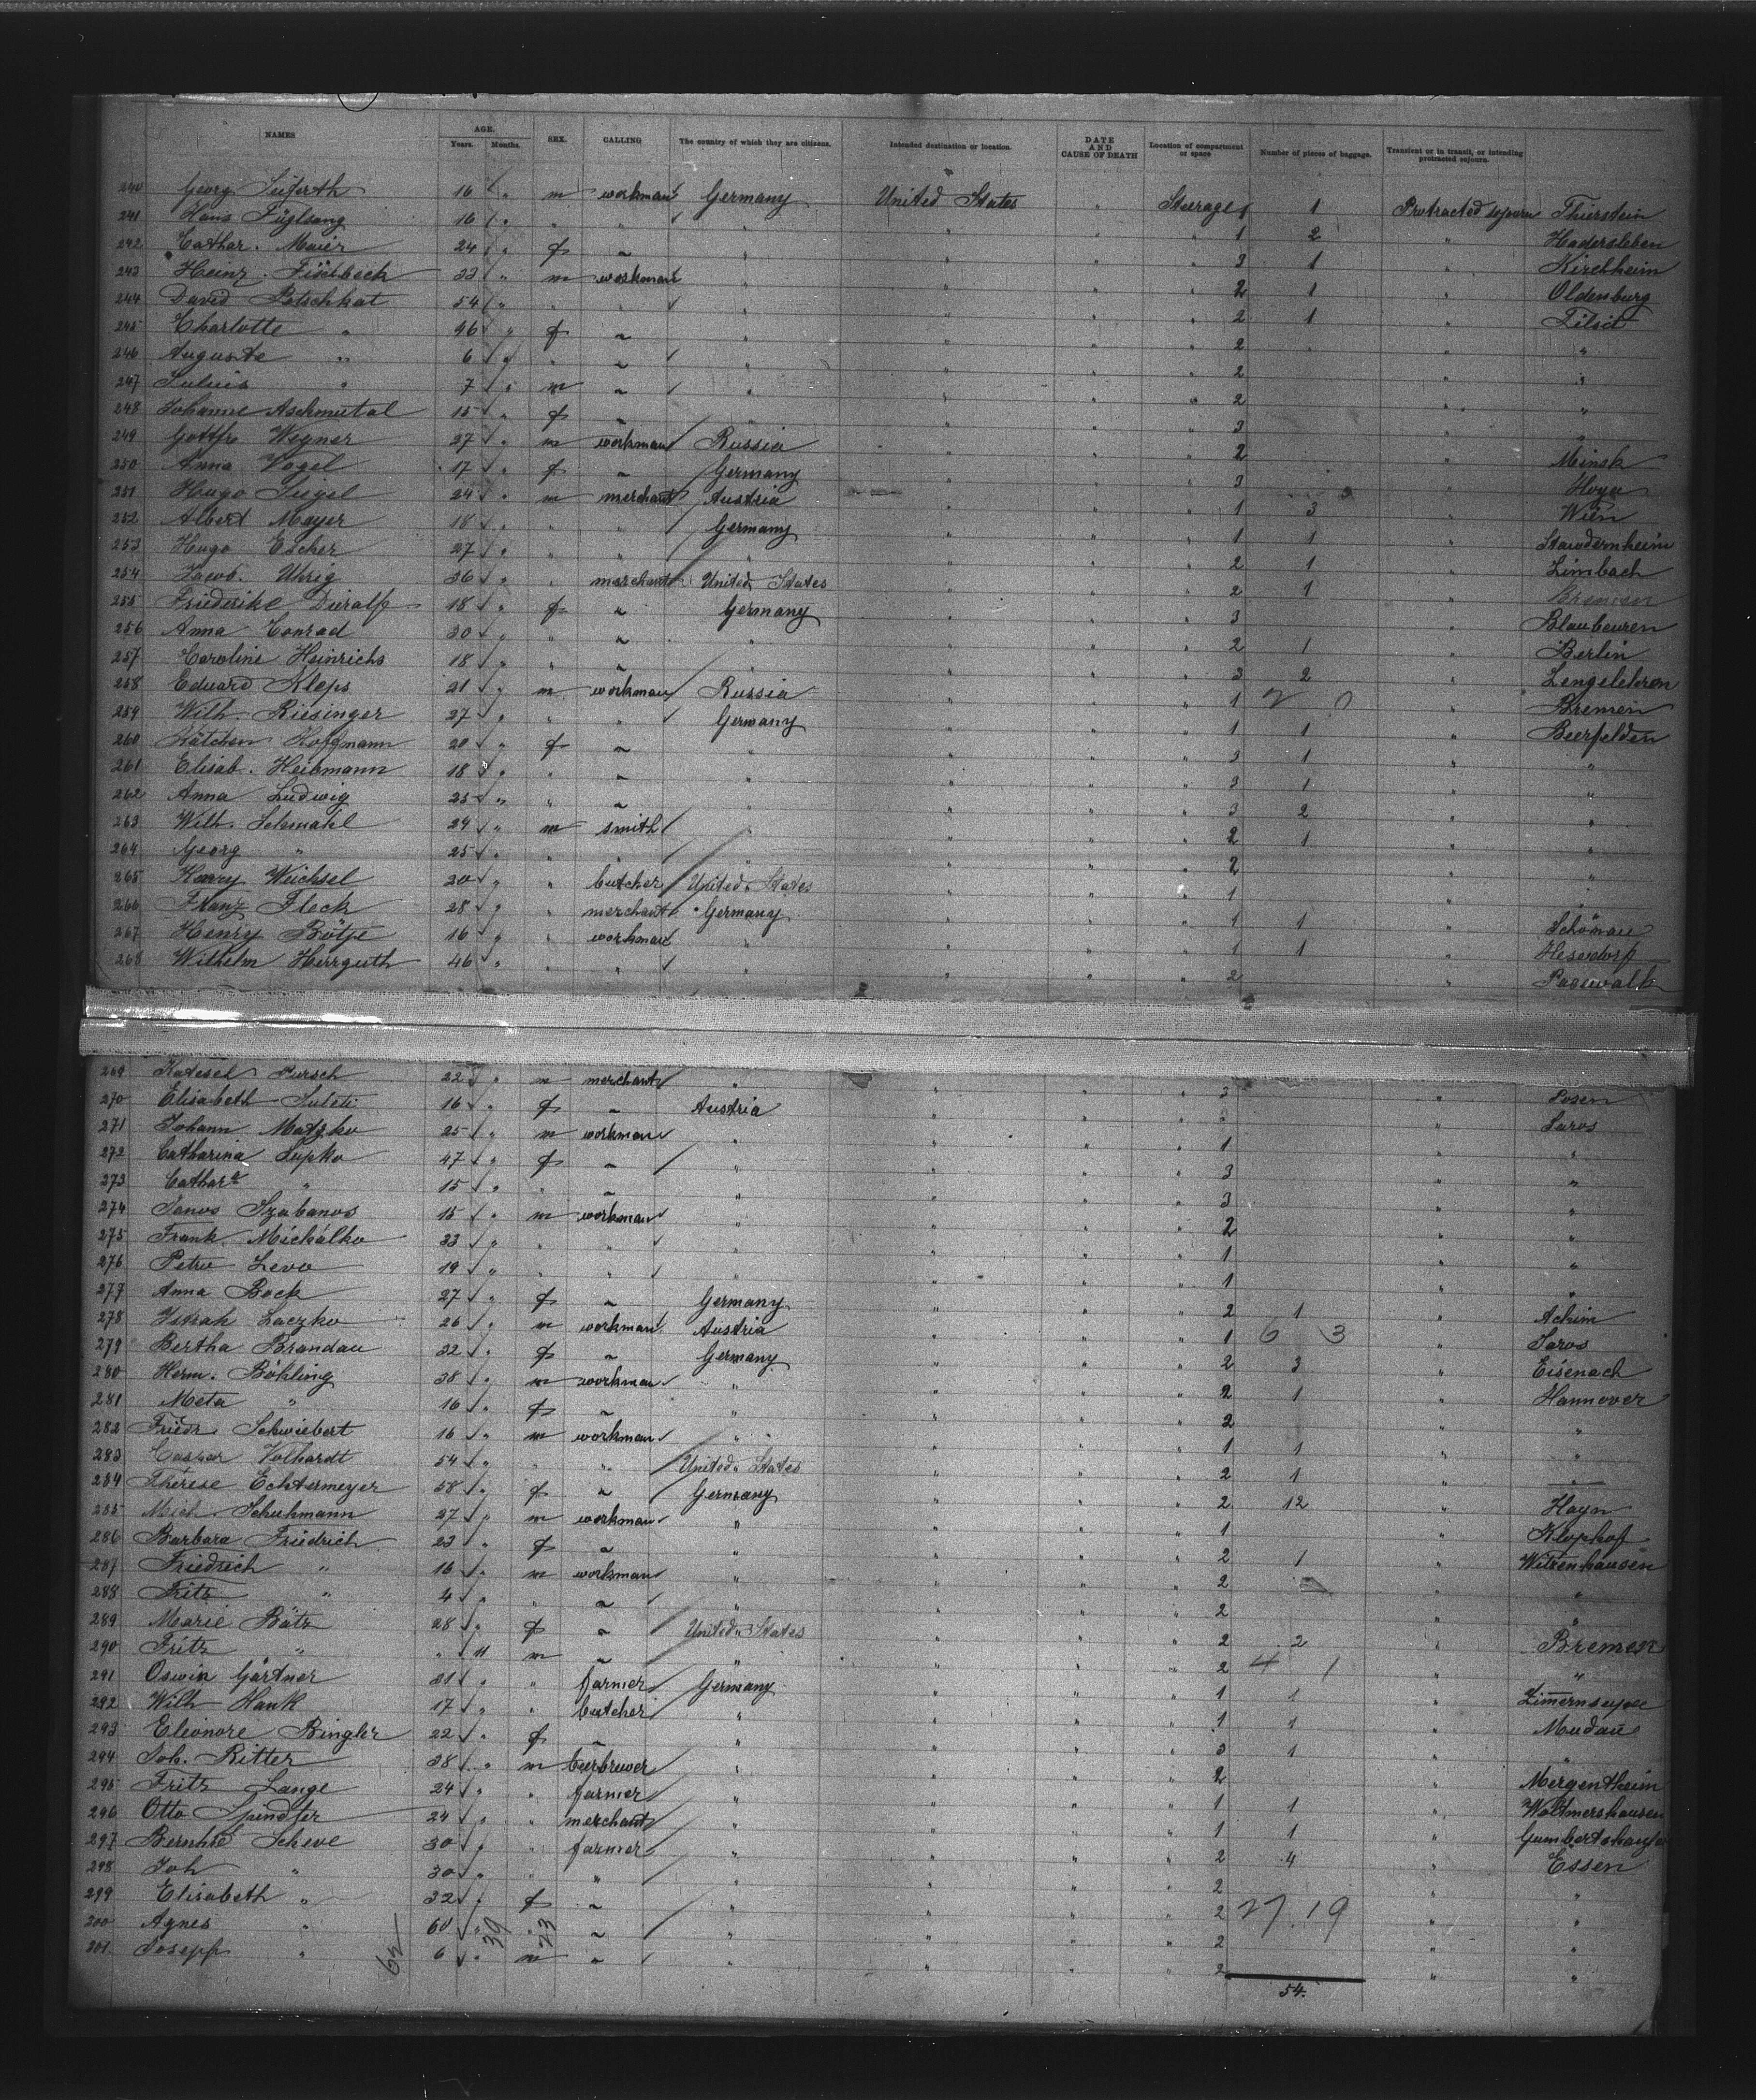 NAMES AGE. Years. Months. SEX. CALLING The country of which they are citizens. Intended destination or location. DATE AND CAUSE OF DEATH Location of compartment or space Number of pieces of baggage. Transient or in transit, or intending protracted sojourn.
240 Georg Seiferth 16 " m workman Germany United States " Steerage 1 1 Protracted sojourn Thierstein
241 Hans Füglsang 16 " " " " " " " 1 2 " Hadersleben
242 Cathar. Maier 24 " f ~ " " " " 3 1 " Kirchheim
243 Heinr. Fischbeck 33 " m workman " " " " 2 1 " Oldenburg
244 David Petschkat 54 " " " " " " " 2 1 " Tilsit
245 Charlotte " 46 " f ~ " " " " 2 " "
246 Auguste " 6 " " ~ " " " " 2 " "
247 Julius " 7 " m ~ " " " " 2 " "
248 Johanne Aschmutat 15 " f ~ " " " " 3 " "
249 Gottfr. Wegner 27 " m workman Russia " " " 2 " Minsk
250 Anna Vogel 17 " f ~ Germany " " " 3 " Hoya
251 Hugo Siegel 24 " m merchant Austria " " " 1 3 " Wien
252 Albert Mayer 18 " " " Germany " " " 1 1 " Staudernheim
253 Hugo Escher 27 " " " " " " " 2 1 " Limbach
254 Jacob Uhrig 36 " " merchant United States " " " 2 1 " Bremen
255 Friederike 18 " f ~ Germany " " " 3 " Blaubeuren
256 Anna Conrad 30 " " ~ " " " " 2 1 " Berlin
257 Caroline Heinrichs 18 " " ~ " " " " 3 2 "
258 Eduard Kleps 21 " m workman Russia " " " 1 2 " Bremen
259 Wilh. Riesinger 27 " " " Germany " " " 1 1 " Beerfelden
260 Kätchen Hoffmann 20 " f ~ " " " " 3 1 " "
261 Elisab. Heibmann 18 " " ~ " " " " 3 1 " "
262 Anna Ludwig 25 " " ~ " " " " 3 2 " "
263 Wilh. Schmahl 29 " m smith " " " " 2 1 " "
264 Georg " 25 " " " " " " " 2 " "
265 Harry Weichsel 20 " " butcher United States " " " 1 " "
266 Franz Fleck 28 " " merchant Germany " " " 1 1 " Schönau
267 Henry Bötje 16 " " workman " " " " 1 1 " Hesedorf
268 Wilhelm Herrguth 46 " " " " " " " 2 " Pasewalk
269 Pursch 22 " m merchant " " " " 3 " Posen
270 Elisabeth 16 " f ~ Austria " " " 3 " Saros
271 Johann Matzko 25 " m workman " " " " 1 " "
272 Catharina Lupko 47 " f ~ " " " " 3 " "
273 Cathara " 15 " " ~ " " " " 3 " "
274 Janos Szabanos 15 " m workman " " " " 2 " "
275 Frank Michálko 33 " " " " " " " 1 " "
276 Petro Levo 19 " " " " " " " 1 " "
277 Anna Bock 27 " f ~ Germany " " " 2 1 " Achim
278 Laczko 26 " m workman Austria " " " 1 6 3 " Saros
279 Bertha Brandau 22 " f ~ Germany " " " 2 3 " Eisenach
280 Herm. Böhling 38 " m workman " " " " 2 1 " Hannover
281 Meta " 16 " f ~ " " " " 2 " "
282 Friedr. Schwiebert 16 " m workman " " " " 1 1 " "
283 Caspar Volhardt 54 " " " United States " " " 2 1 " —
284 Therese Echtermeyer 58 " f ~ Germany " " " 2 12 " Hayn
285 Mich. Schuhmann 27 " m workman " " " " 1 " Klophof
286 Barbara Friedrich 23 " f ~ " " " " 2 1 " Witzenhausen
287 Friedrich " 16 " m workman " " " " 2 " "
288 Fritz " 4 " " ~ " " " " 2 " "
289 Marie Bätz 28 " f ~ United States " " " 2 2 " Bremen
290 Fritz " " 11 m ~ " " " " 2 4 1 " "
291 Oswin Gärtner 21 " " farmer Germany " " " 1 1 "
292 Wilh Hank 17 " " butcher " " " " 1 1 " Mudau
293 Eleonore Bingler 22 " f ~ " " " " 3 1 " "
294 Joh. Ritter 38 " m beerbrewer " " " " 2 " Mergentheim
295 Fritz Lange 24 " " farmer " " " " 1 1 " Woltmershausen
296 Otto Spindler 24 " " merchant " " " " 1 1 "
297 Bernhd Scheve 30 " " farmer " " " " 2 4 " Essen
298 Joh " 30 " " " " " " " 2 " "
299 Elisabeth " 32 " f ~ " " " " 2 27.19 " "
300 Agnes " 60 " " ~ " " " " 2 " "
301 Joseph " 6 " m ~ " " " " 2 " "
62 39 23
54.